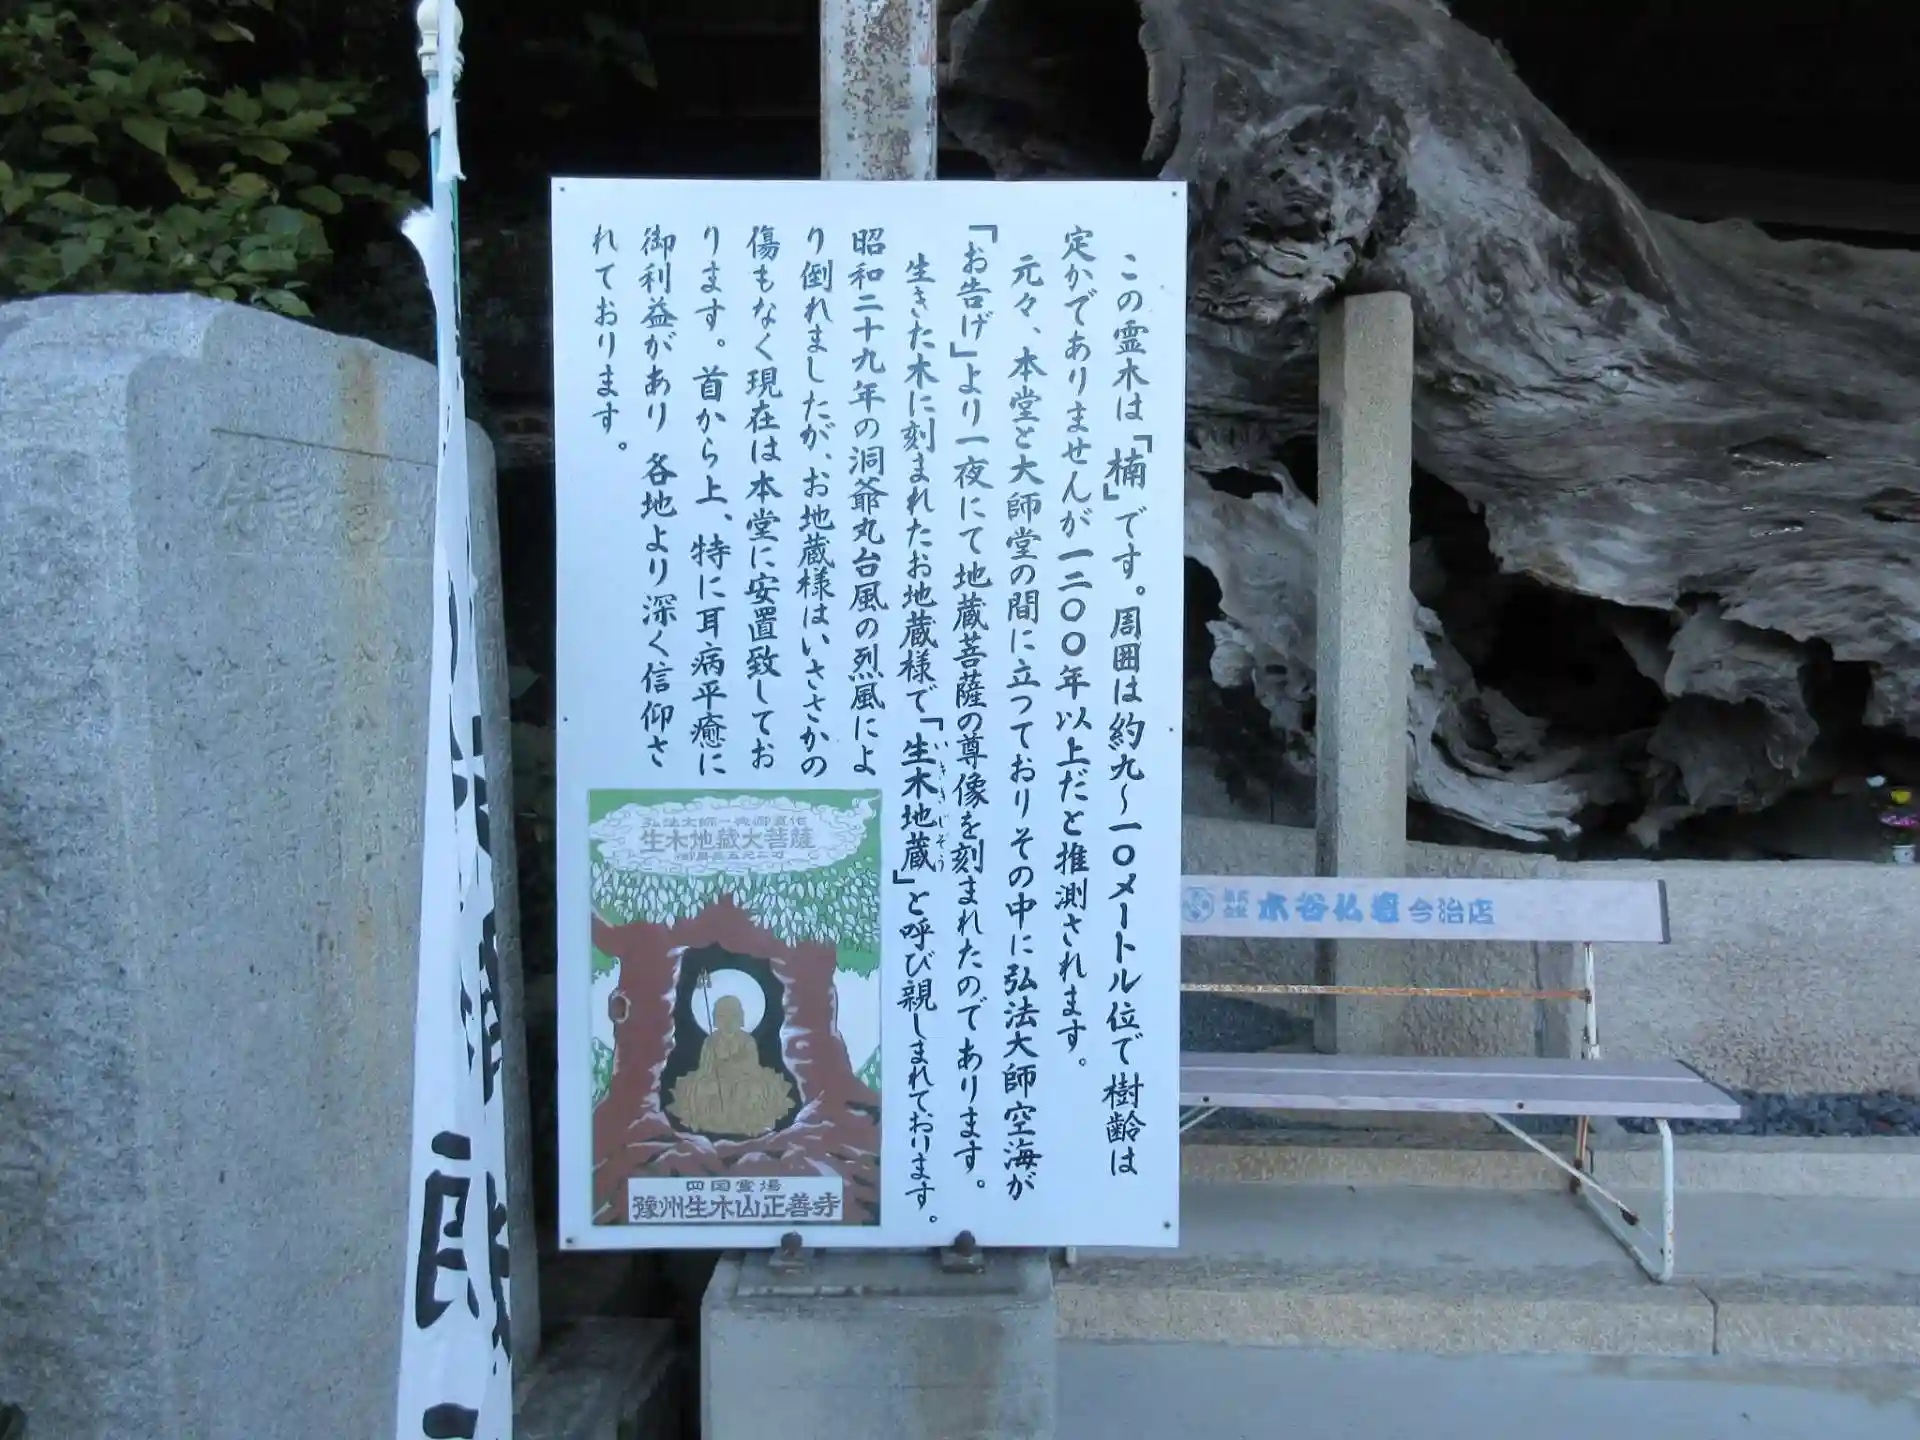 この霊木は『楠』です。周囲は約九～一〇メートル位で樹齢は
定かでありませんが一二〇〇年以上だと推測されます。
元々、本堂と大師堂の間に立っておりその中に弘法大師空海が
『お告げ』より一夜にて地蔵菩薩の尊像を刻まれたのであります。
生きた木に刻まれたお地蔵様で『生木地蔵』と呼び親しまれております。
いききじぞう
昭和二十九年の洞爺丸台風の烈風によ
り倒れましたが、お地蔵様はいささかの
傷もなく現在は本堂に安置致してお
ります。首から上、特に耳病平癒に
御利益があり各地より深く信仰さ
れております。
弘法大師一夜御直作
生木地蔵大菩薩
四国霊場
豫州生木山正善寺
株式会社 木谷仏壇 今治店